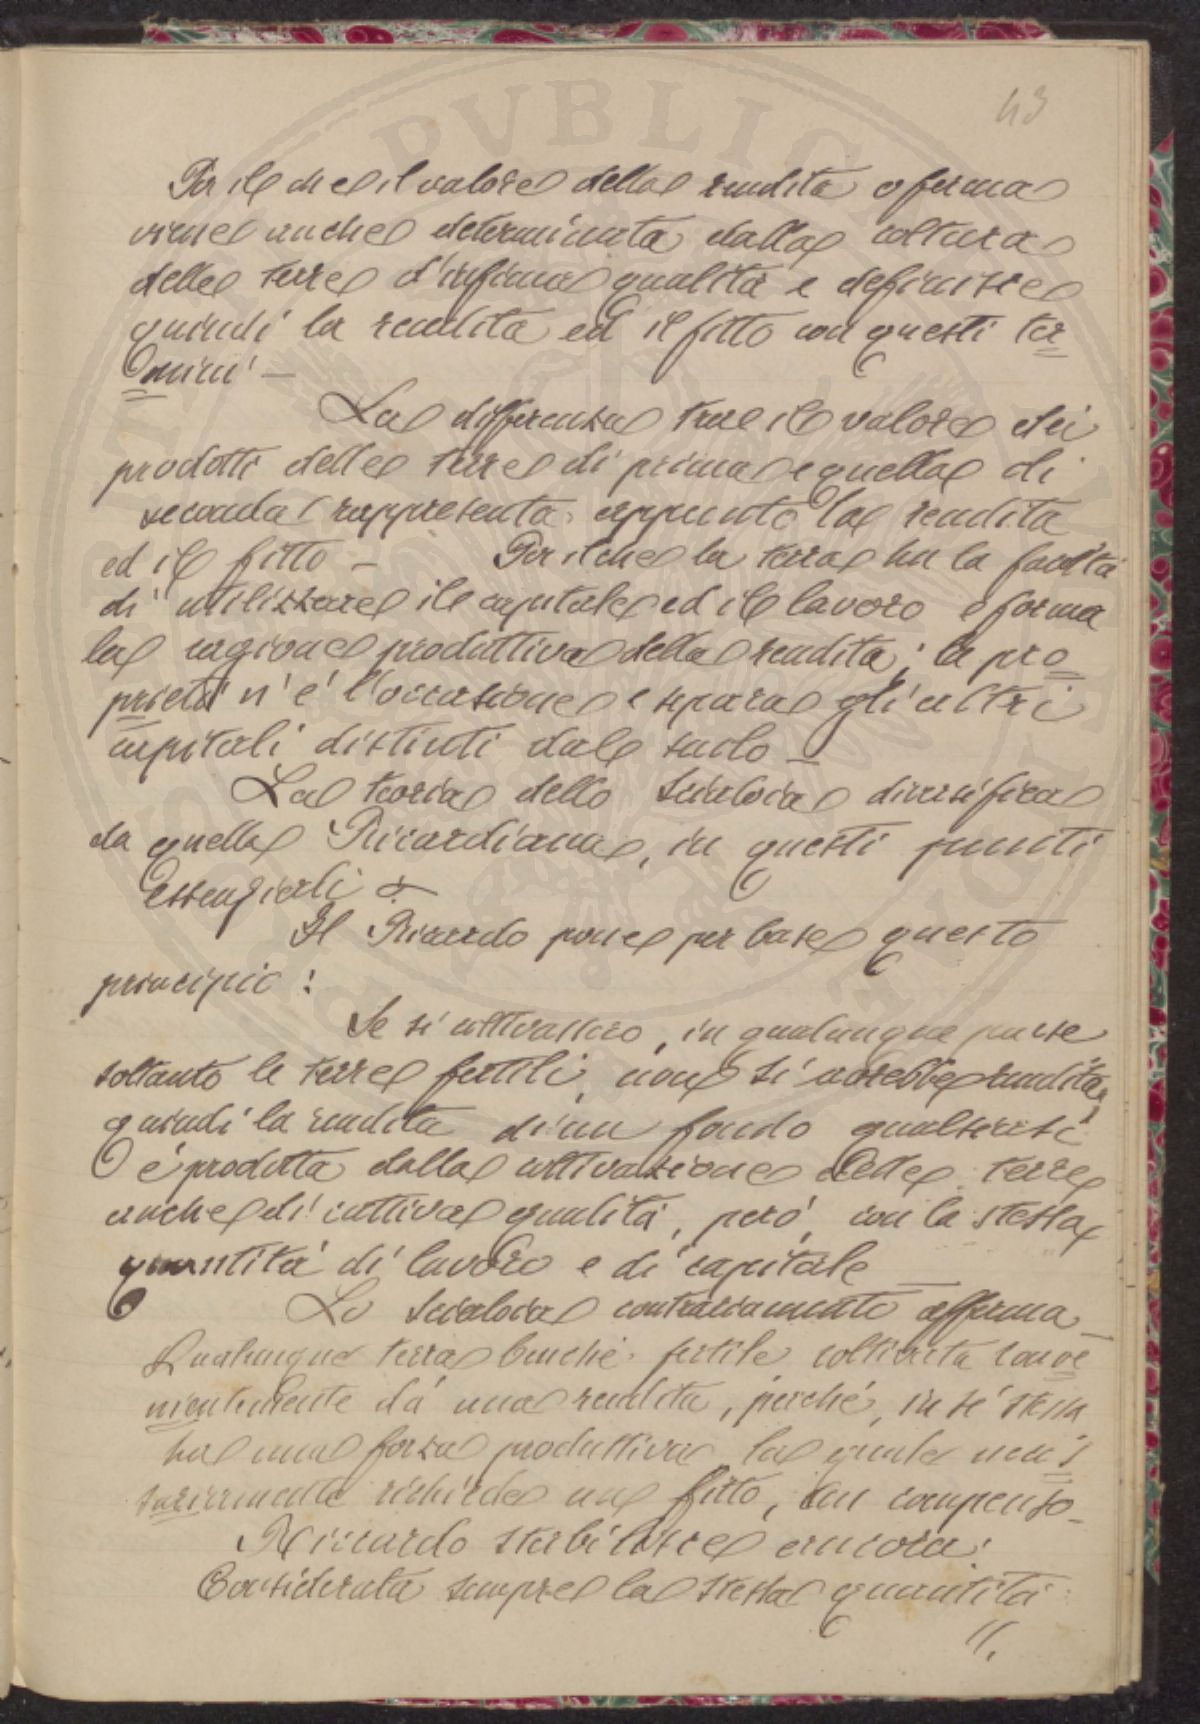 43
Per il che il valore della rendita o ferma
viene anche determinata dalla coltura
delle terre d'infima qualità e definisce
quindi la rendita ed il fitto con questi ter
mini —
La differenza tra il valore dei
prodotti delle terre di prima e quella di
seconda rappresenta appunto la rendita
ed il fitto — Per il che la terra ha la facoltà
di utilizzare il capitale ed il lavoro e forma
la ragione produttiva della rendita; la pro
prietà n'è l'occasione e separa gli altri
capitali distinti dal suolo —
La teoria dello Scialoia diversifica
da quella Ricardiana, in questi punti
essenziali
Il Ricardo pone per base questo
principio:
Se si coltivassero, in qualunque paese
soltanto le terre fertili, non si avrebbe rendita,
quindi la rendita di un fondo qualsiasi
è prodotta dalla coltivazione delle terre
anche di cattiva qualità, però, con la stessa
quantità di lavoro e di capitale —
Lo Scialoia contrariamente afferma —
Qualunque terra benché fertile coltivata conve
nientemente dà una rendita, perché, in sé stessa
ha una forza produttiva la quale neces
sariamente richiede un fitto, un compenso —
Riccardo stabilisce ancora:
Considerata sempre la stessa quantità
//.
PVBLICA